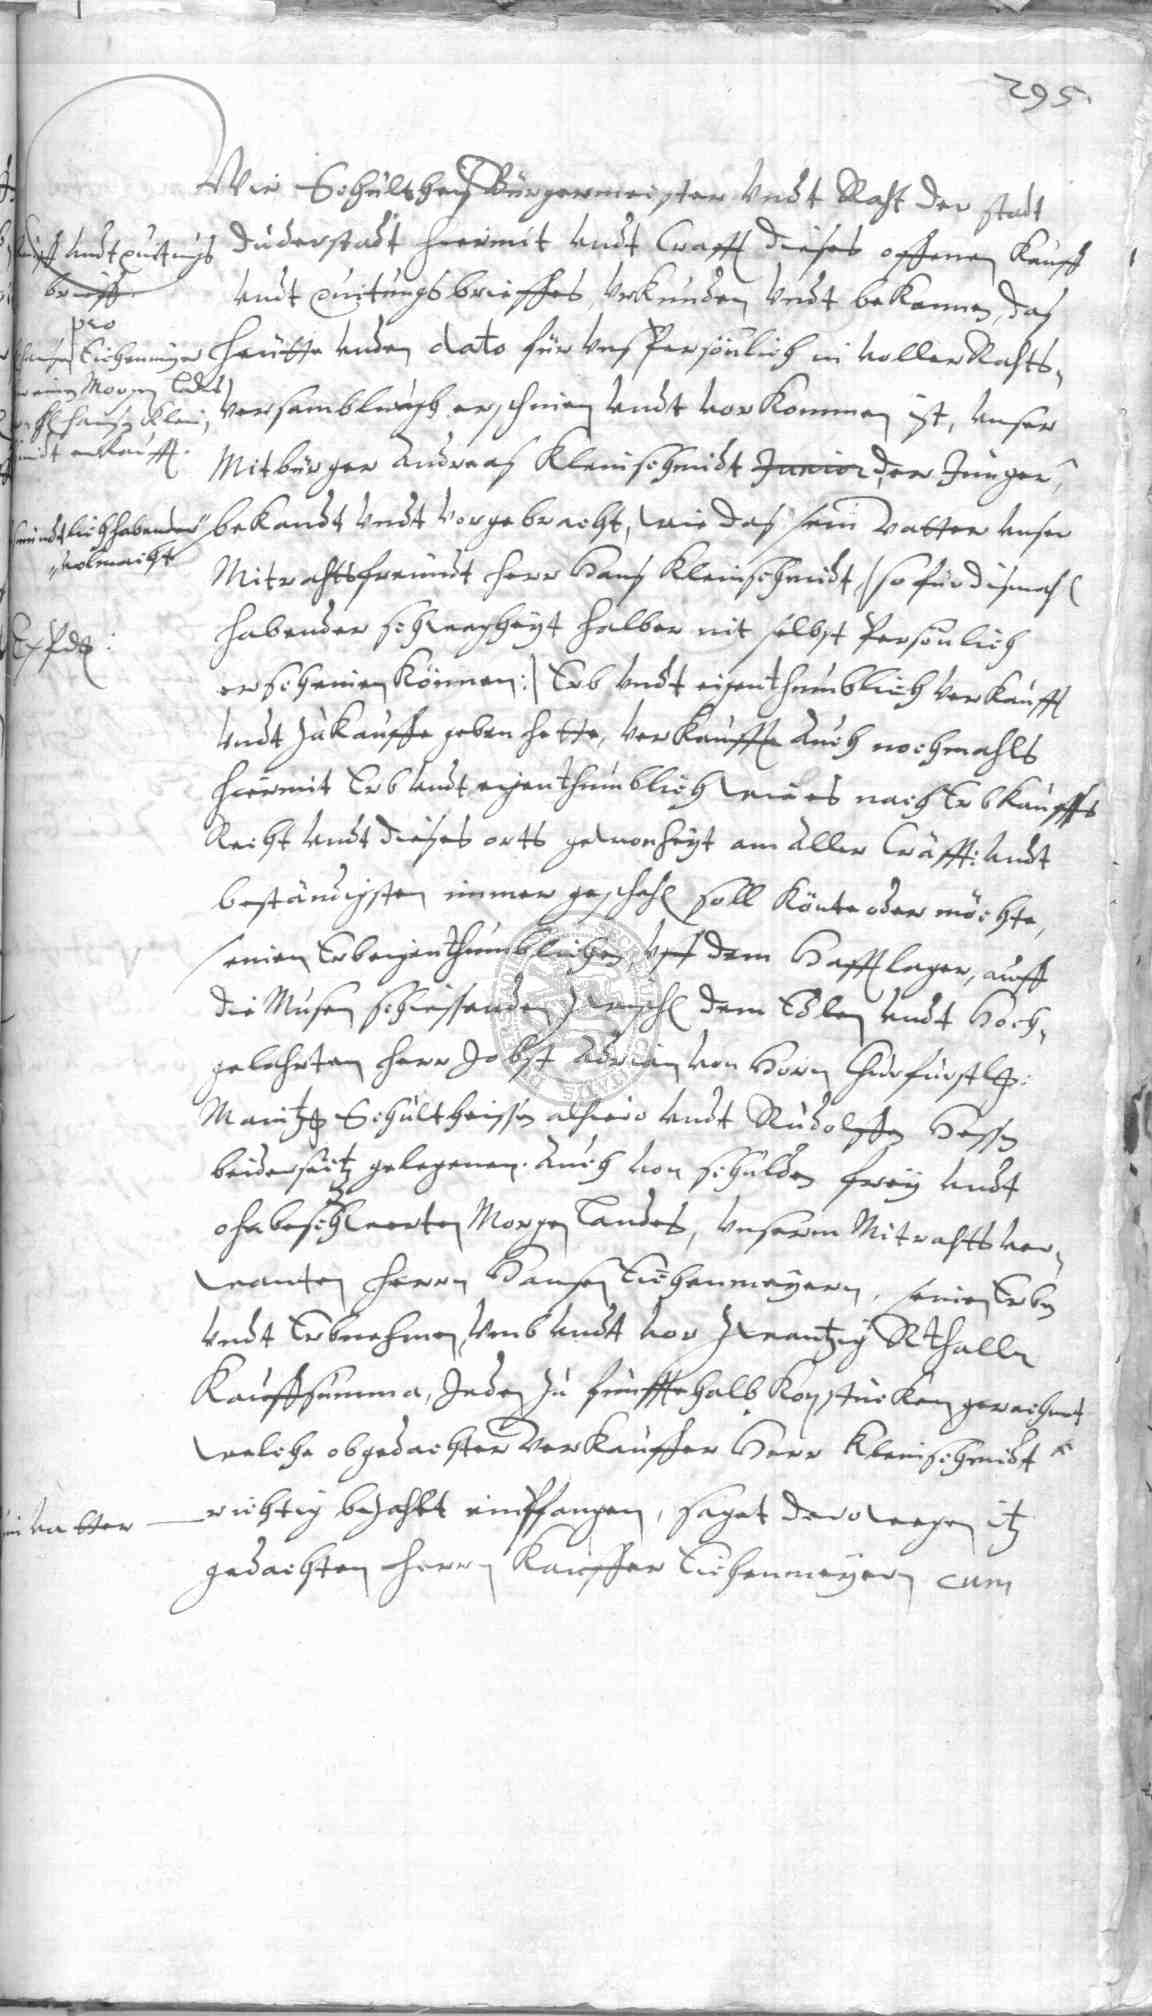 295.
Wir Schultheiß Bürgermeister Undt Raht der stadt
Duderstadt hiermit undt Crafft dieses offenen Kauff
undt quitungsbrieffes, urkunden Undt bekennen, daß
heutte unden dato für unß Persönlich in voller Rahts-
versamblungh erschienen undt vorkommen ist, unser
Mitbürger Andreas Kleinschmidt Junior der Jünger,
bekandt Undt vorgebracht, wie daß sein Vatter unser
Mitrahtsfreundt Herr Hanß Kleinschmidt /: so für dißmahl
habender schwagheyt halber nit selbst Persönlich
erscheinen können :/ Erb Undt eigenthumblich verkaufft
Undt zu kauffe geben hette, verkauffte Auch nochmahls
hiermit Erb undt eigenthumblich wie es nach Erbkauffs
Recht undt dieses orts gewonheyt am aller Cräfft: undt
beständigsten immer geschehen soll könte oder möchte,
seinen Erbeigenthumblichen uff dem lager, auff
die Musen schiessenden zwisch dem Edlen undt Hoch-
gelehrten Herr Jobst Adrian von Horn Churfürstlich:
Maintz Schultheissen alhier undt Rudolffen Hessen
beiderseitz gelegenen. Auch von schulden frey undt
ohnbeschwerten Morgen Landes, Unserm Mitrahtsver-
wanten Herrn Hansen Eichenmeyern, seinen Erben
Undt Erbnehmen, Umb undt vor zwantzig Rthaller
Kauffsumma, Jeden zu fünffthalb Kopstücken gerechnet
welche obgedachter Verkauffer Herr Kleinschmidt
richtig bezahlt empfangen, saget derowegen itz
gedachten Herrn Kauffer Eichenmeyern cum
Kauff undt quitungs
brieff.
pro
Hansen Eichenmeyer
einen Morgen Landes
Hansen Klein-
schmidt erkaufft.
mündtlich habender
volmacht
sein vatter